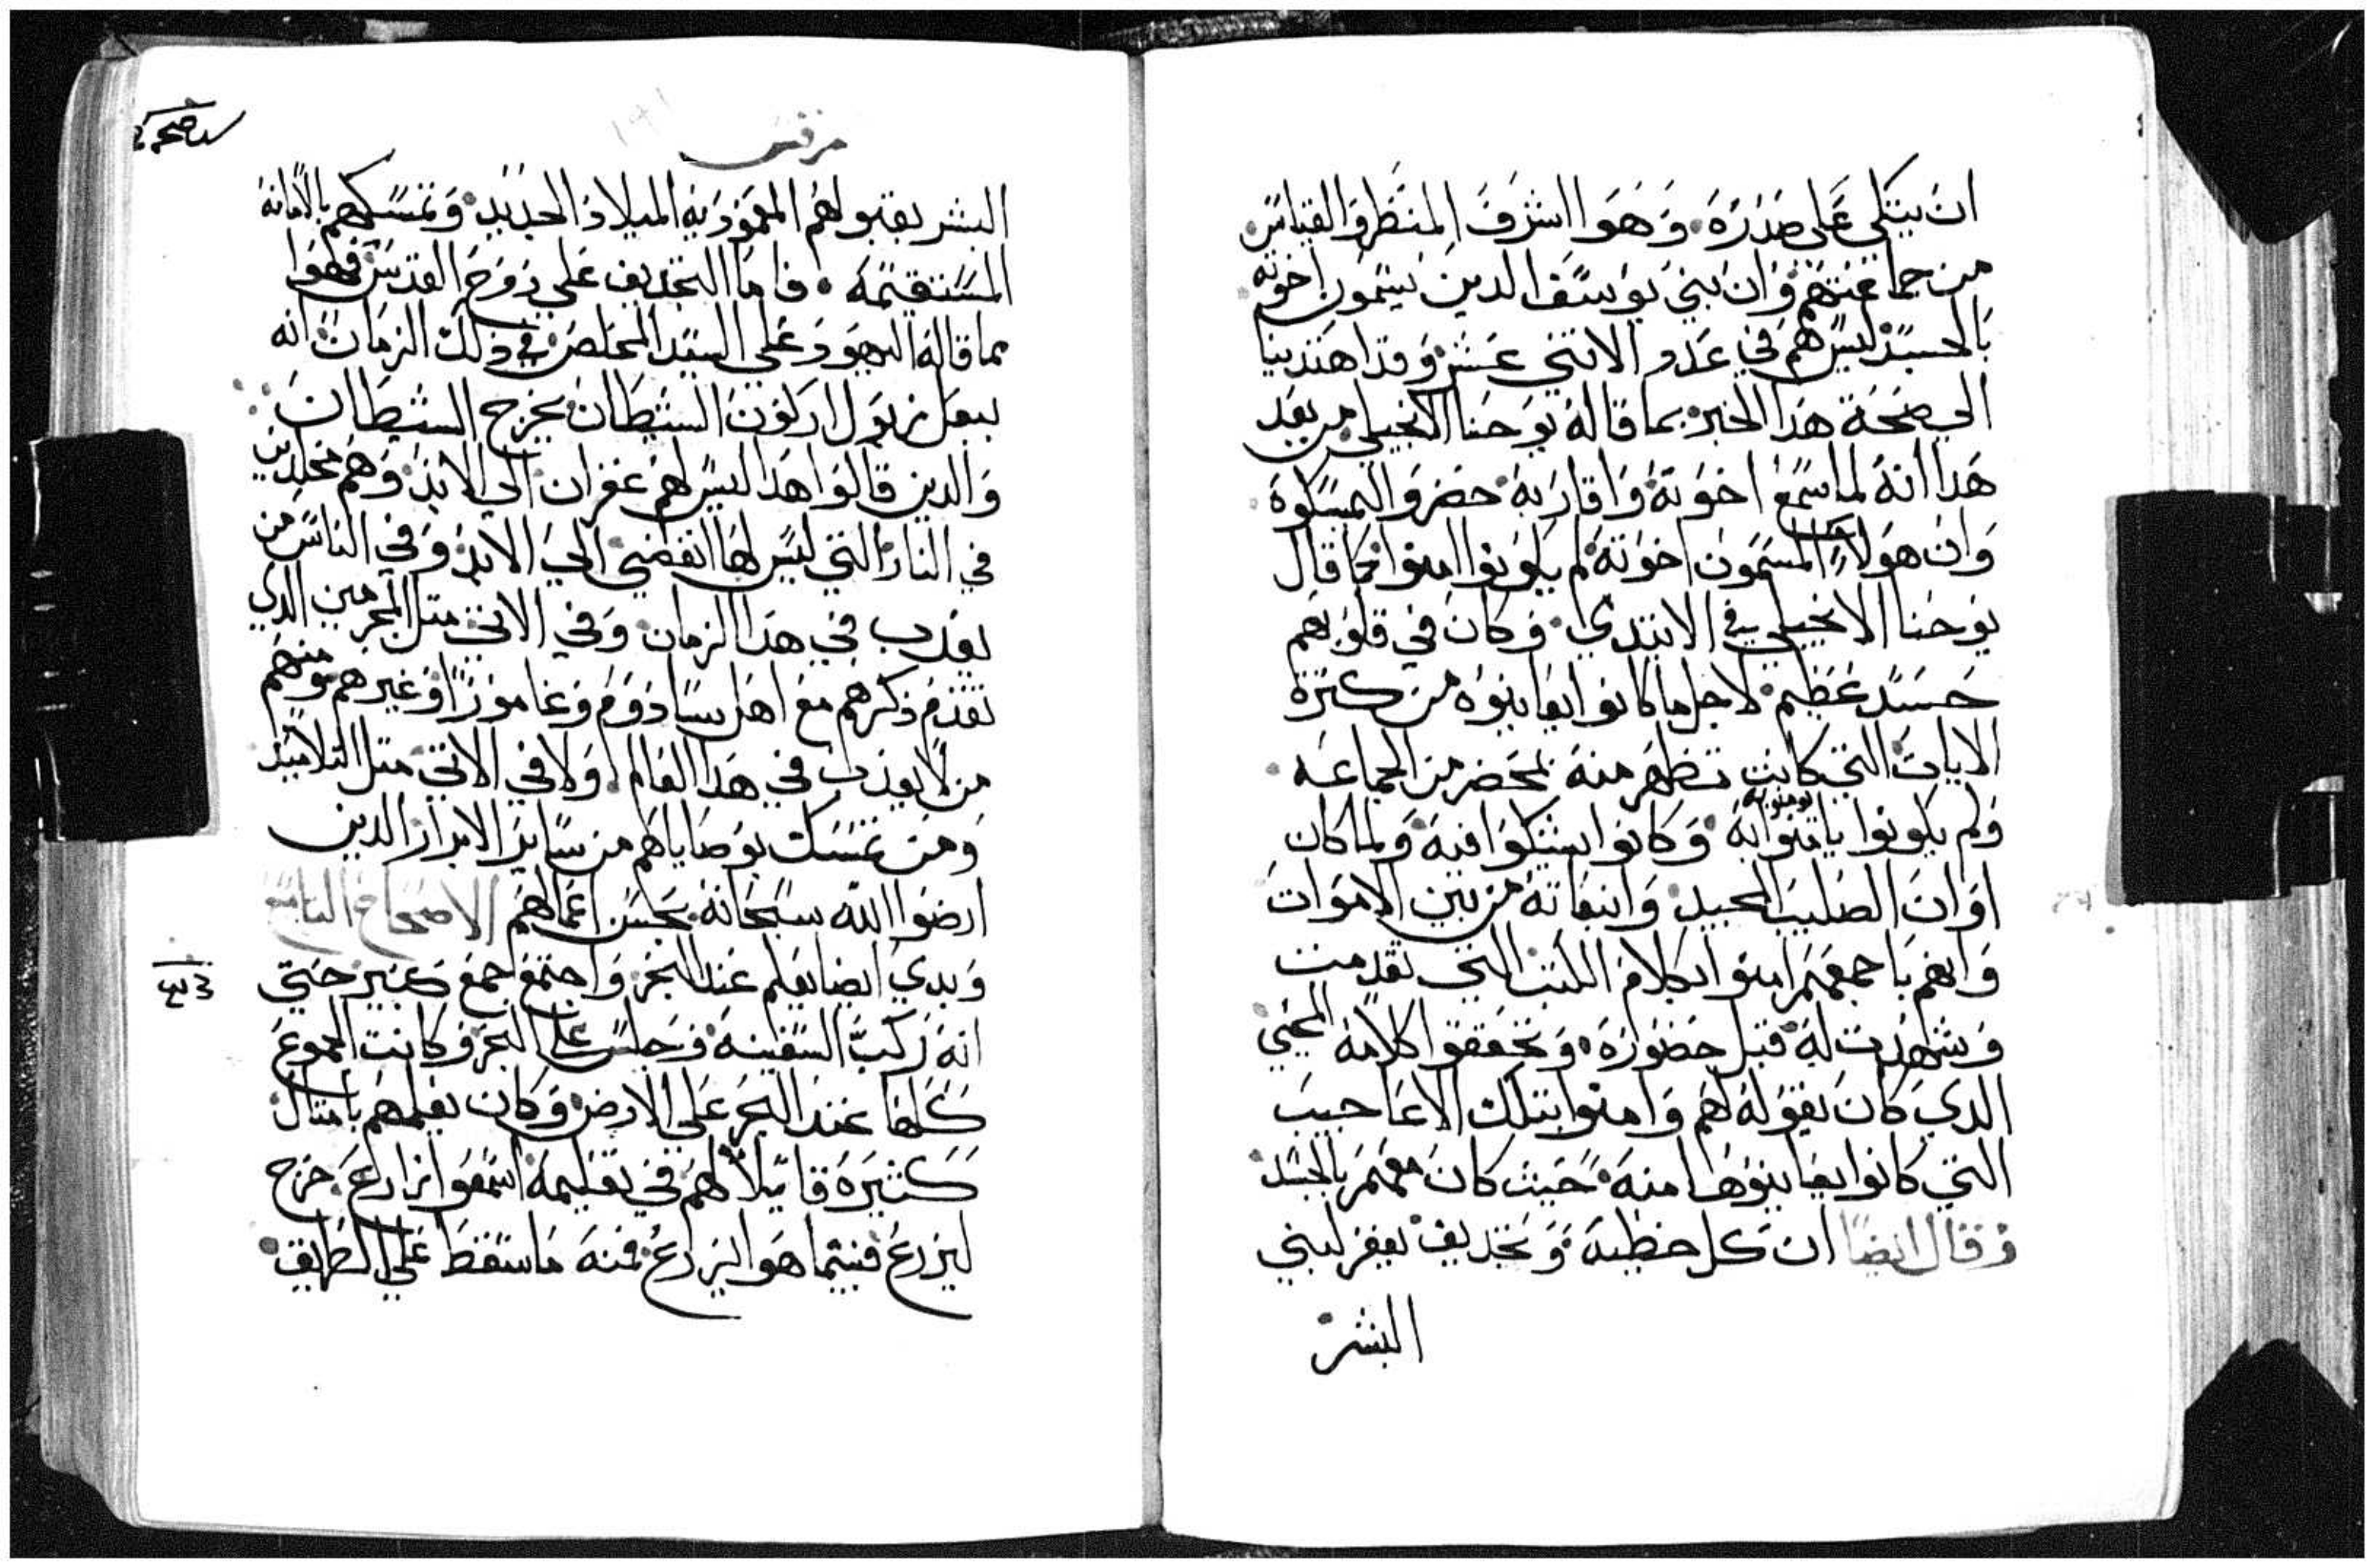 ان يتكي علي صدره وهوا اشرف المنظر والقياس
من جماعتهم وان بني يوسف الدين يسمون اخوته
بالجسد ليس هم في عدد الاتني عشر وقد اهتدينا
الي صحة هدا الخبر بما قاله يوحنا الانجيلي من بعد
هدا انه لما سمع اخوته واقاربه حضروا ليمسكوه
وان هولاء المسمون اخوته لم يكونوا امنوا كما قال
يوحنا الانجيلي في الابتدي وكان في قلوبهم
حسد عظيم لاجل ما كانوا يعاينوه من كترة
الايات التي كانت تظهر منه بمحضر من الجماعه
ولم يكونوا يامنوا به وكانوا يشكوا فيه ولما كان
يومنو به
اوان الصليب المجيد وانبعاته من بين الاموات
وانهم باجمعهم امنوا بكلام الكتب التي تقدمت
وشهدت له قبل حضوره وتحققوا كلامه المحيي
الدي كان يقوله لهم وامنوا بتلك الاعاجيب
التي كانوا يعاينوها منه حيت كان معهم بالجسد
وقال ايضا ان كل خطيه وتجديف يغفر لبني
البشر
مرقس
البشر بقبولهم المعمودية الميلاد الجديد وتمسكهم بالامانه
المستقيمه فاما التجديف علي روح القدس فهوا
مما قاله اليهود علي السيد المخلص في دلك الزمان انه
ببعل زبول اركون الشيطان يخرج الشيطان
والدين قالوا هدا ليس لهم غفران الي الابد وهم مخلدين
في النار التي ليس لها انقضي الي الابد وفي الناس من
يعدب في هدا الزمان وفي الاتي متل المجرمين الدي
تقدم دكرهم مع اهل سادوم وغامورا وغيرهم ومنهم
من لا يعدب في هدا العالم ولا في الاتي متل التلاميد
ومن تمسك بوصاياهم من ساير الابرار الدين
ارضوا الله سبحانه بحسن اعمالهم الاصحاح التاسع
وبدي ايضا يعلم عند البحر واجتمع جمع كبير حتي
انه ركب السفينه وجلس علي البحر وكانت الجموع
كلها عند البحر علي الارض وكان يعلمهم بامتال
كثيره قايلا لهم في تعليمه اسمعوا زارع خرج
ليزرع فبينما هو ايزرع فمنه ما سقط علي الطريق